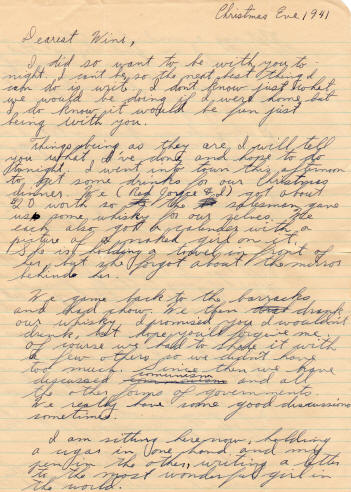 Christmas Eve, 1941
Dearest Wins,
I did so want to be with you to-
night. I can't be, so the next best thing I
can do is write. I don't know just what
we would be doing if I were home but
I do know it would be fun just
being with you.
Things being as they are, I will tell
you what I've done and hope to do
tonight. I went into town this afternoon
to get some drinks for our Christmas
dinner. We (Tad Joyce & I) got about
$20 worth so the salesman gave
us some whisky for our selves. He
each also got a calender with a
picture of a naked girl on it.
She is holding a towel in front of
her but she forgot about the mirror
behind her.
We came back to the barracks
and had chow. We then drank
our whisky. I promised you I wouldn't
drink, but hope you'll forgive me.
Of course we had to share it with
a few others so we didn't have
too much. Since then we have
discussed communism and all
the other forms of governments.
We really have some good discussions
sometimes.
I am sitting here now, holding
a cigar in one hand and my
pen in the other, writing a letter
to the most wonderful girl in
the world.